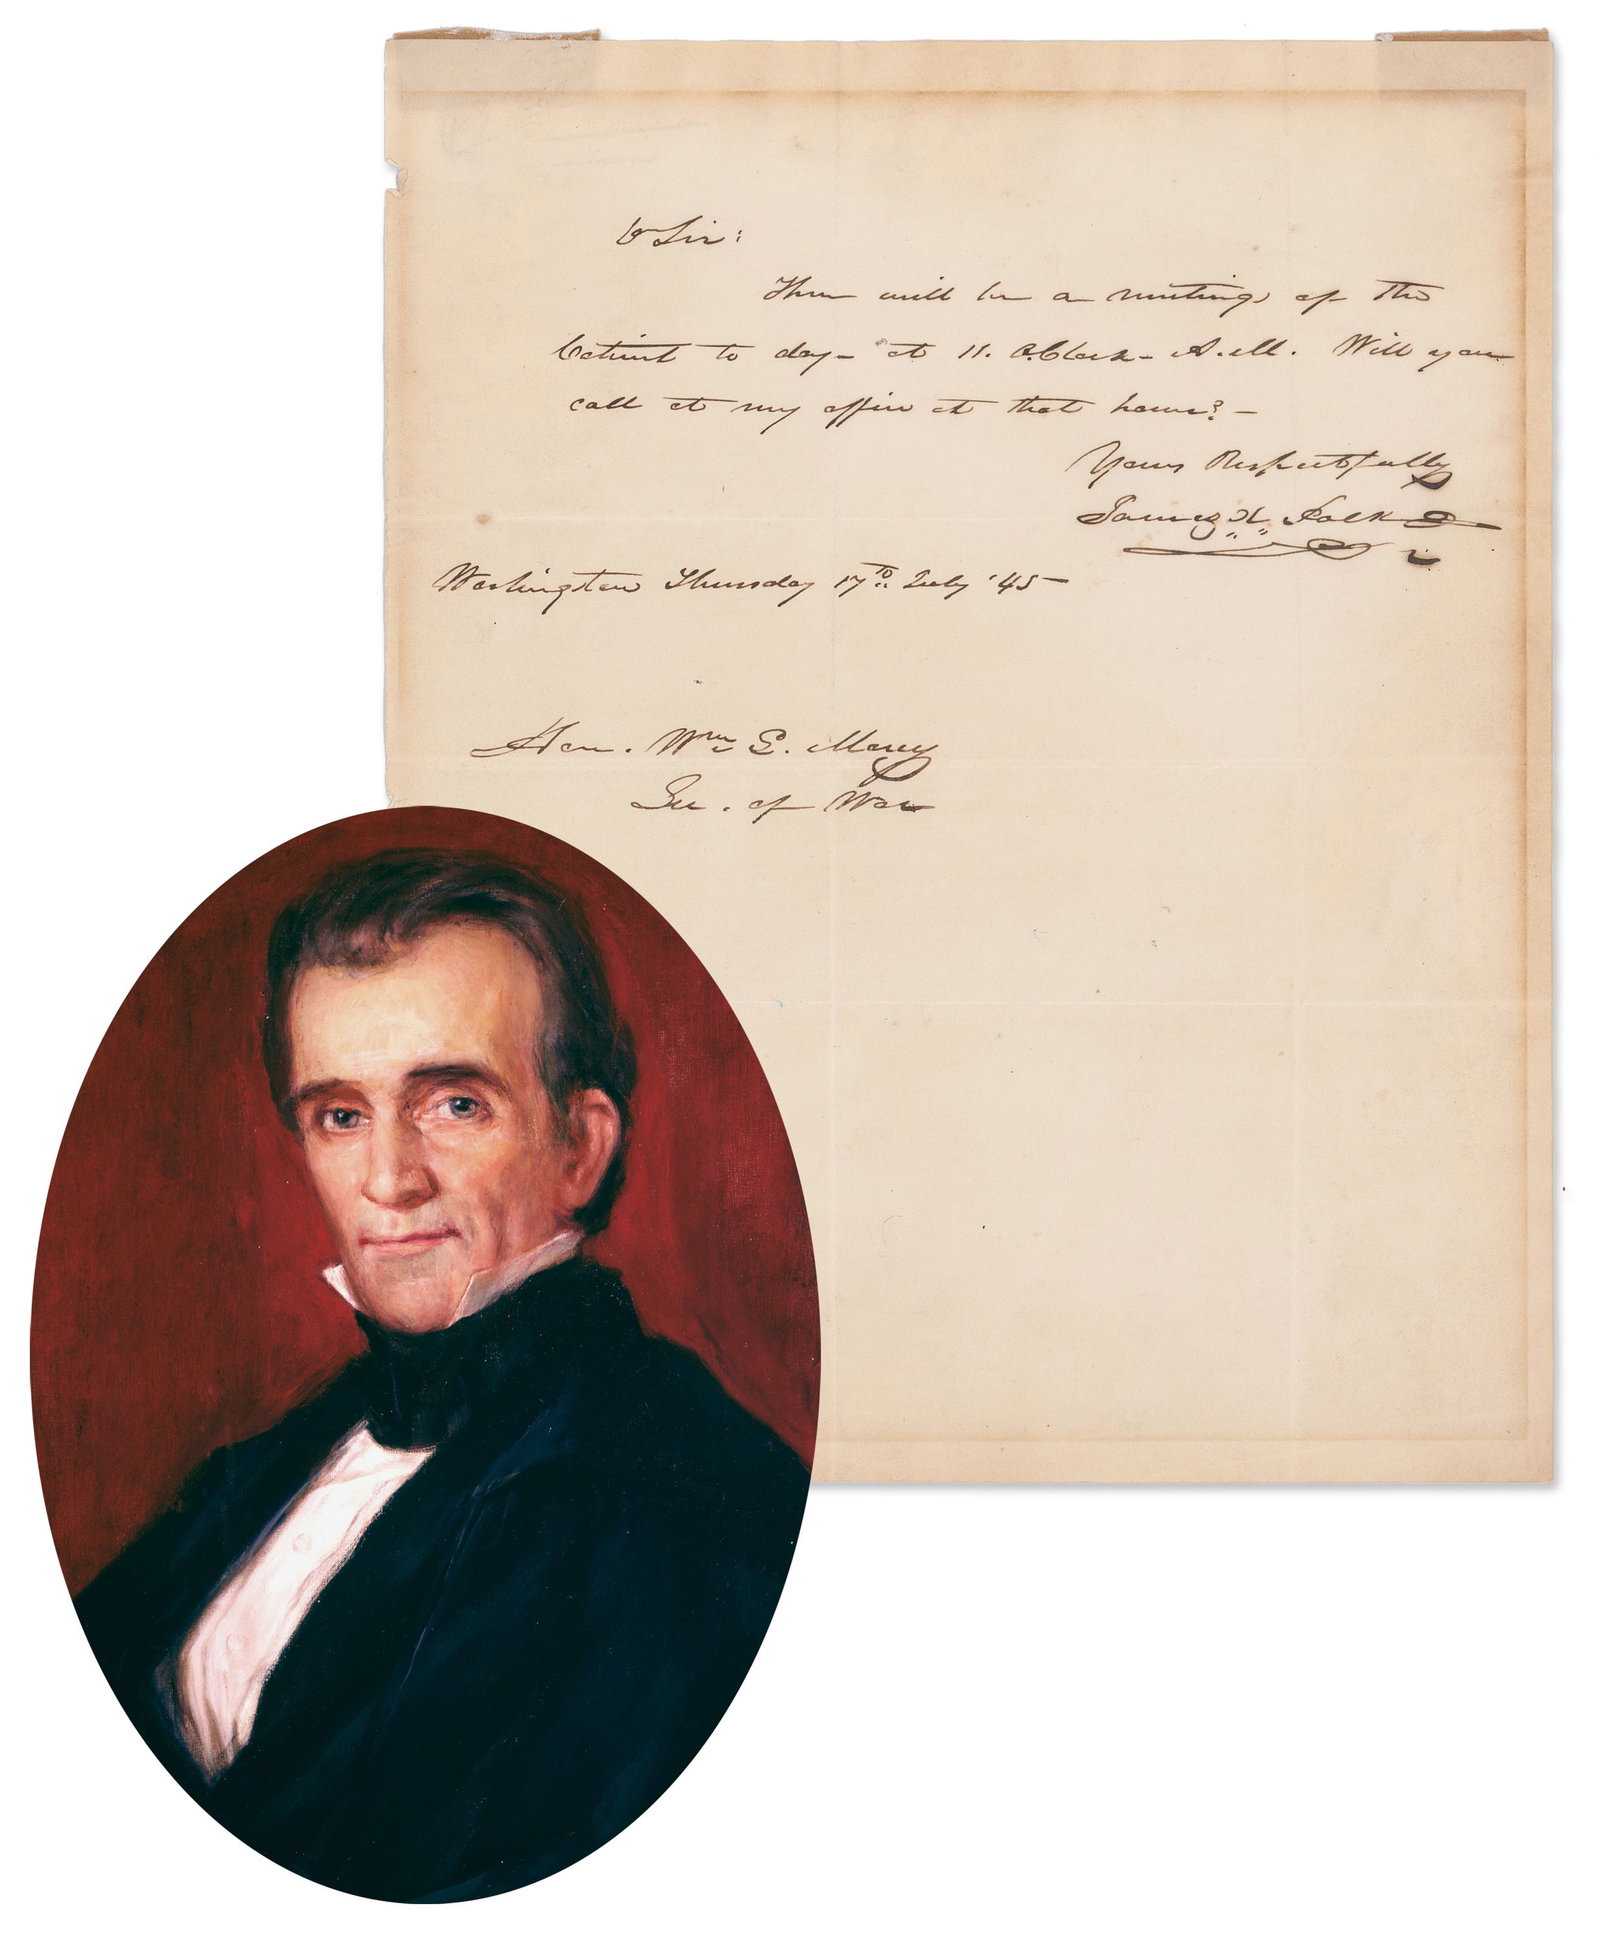 Sir:
There will be a meeting of the
Cabinet to day - at 11. O.Clock - A.M. Will you
call at my office at that hour? -
Yours Respectfully
James K. Polk
Washington Thursday 17th July '45 -
Hon. Wm L. Marcy
Sec. of War